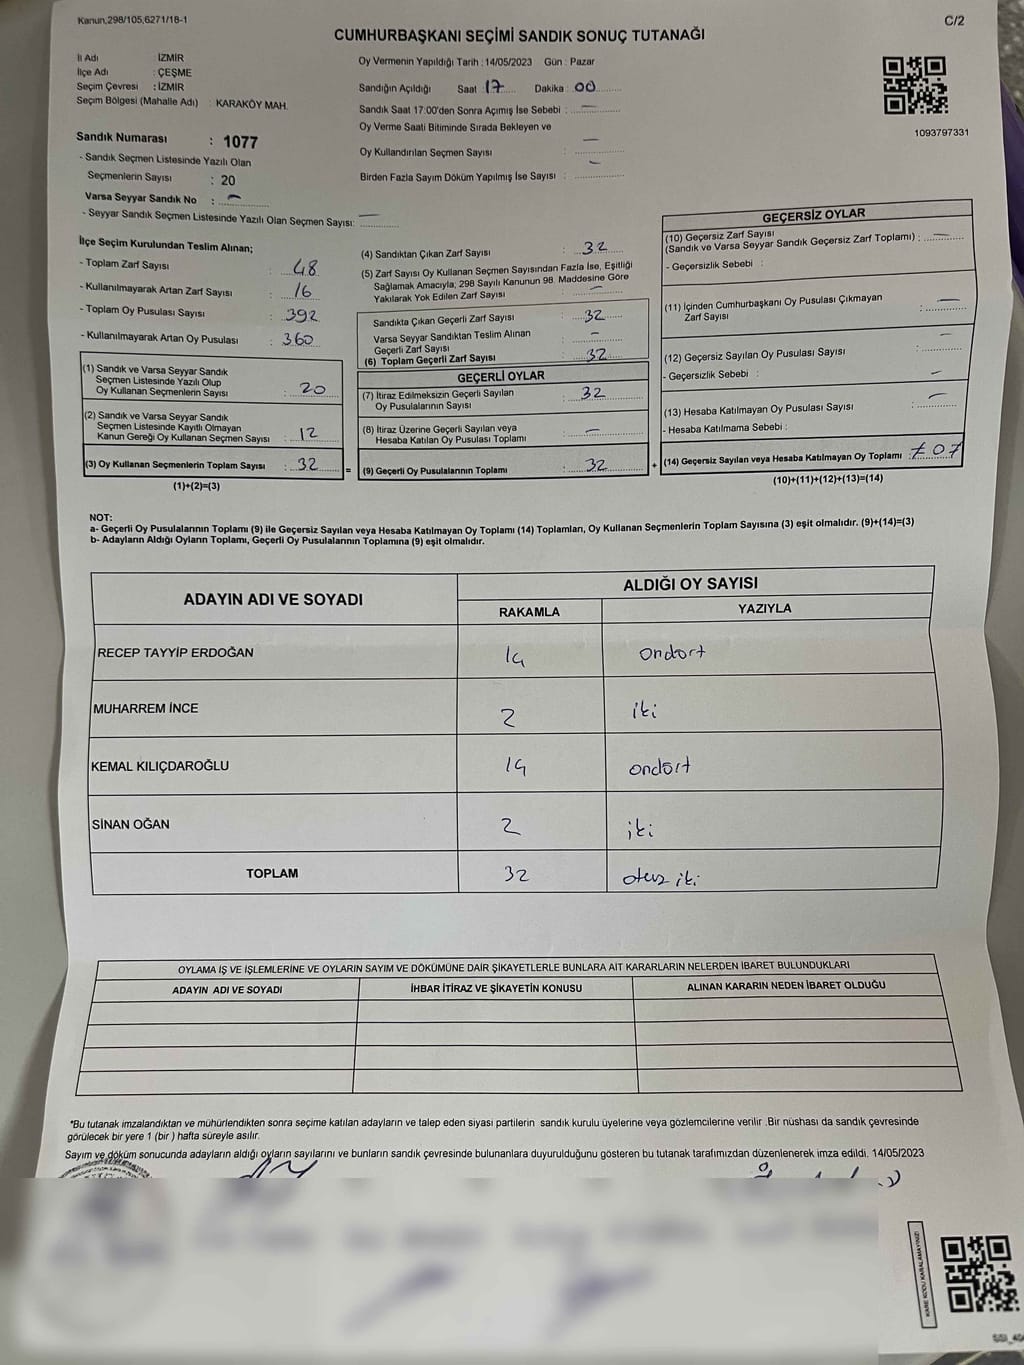 Kanun,298/105,6271/18-1
C/2
CUMHURBAŞKANI SEÇİMİ SANDIK SONUÇ TUTANAĞI
İl Adı : İZMİR
İlçe Adı : ÇEŞME
Seçim Çevresi : İZMİR
Seçim Bölgesi (Mahalle Adı) : KARAKÖY MAH.
Sandık Numarası : 1077
- Sandık Seçmen Listesinde Yazılı Olan
Seçmenlerin Sayısı : 20
Varsa Seyyar Sandık No : —
- Seyyar Sandık Seçmen Listesinde Yazılı Olan Seçmen Sayısı: —
Oy Vermenin Yapıldığı Tarih : 14/05/2023 Gün : Pazar
Sandığın Açıldığı Saat 17 Dakika : 00
Sandık Saat 17:00'den Sonra Açımış İse Sebebi : —
Oy Verme Saati Bitiminde Sırada Bekleyen ve
Oy Kullandırılan Seçmen Sayısı : —
Birden Fazla Sayım Döküm Yapılmış İse Sayısı : —
1093797331
İlçe Seçim Kurulundan Teslim Alınan;
- Toplam Zarf Sayısı : 48
- Kullanılmayarak Artan Zarf Sayısı : 16
- Toplam Oy Pusulası Sayısı : 392
- Kullanılmayarak Artan Oy Pusulası : 360
(1) Sandık ve Varsa Seyyar Sandık
Seçmen Listesinde Yazılı Olup
Oy Kullanan Seçmenlerin Sayısı : 20
(2) Sandık ve Varsa Seyyar Sandık
Seçmen Listesinde Kayıtlı Olmayan
Kanun Gereği Oy Kullanan Seçmen Sayısı : 12
(3) Oy Kullanan Seçmenlerin Toplam Sayısı : 32
(1)+(2)=(3)
=
(4) Sandıktan Çıkan Zarf Sayısı : 32
(5) Zarf Sayısı Oy Kullanan Seçmen Sayısından Fazla İse, Eşitliği
Sağlamak Amacıyla; 298 Sayılı Kanunun 98. Maddesine Göre
Yakılarak Yok Edilen Zarf Sayısı : —
Sandıkta Çıkan Geçerli Zarf Sayısı : 32
Varsa Seyyar Sandıktan Teslim Alınan
Geçerli Zarf Sayısı : —
(6) Toplam Geçerli Zarf Sayısı : 32
GEÇERLİ OYLAR
(7) İtiraz Edilmeksizin Geçerli Sayılan
Oy Pusulalarının Sayısı : 32
(8) İtiraz Üzerine Geçerli Sayılan veya
Hesaba Katılan Oy Pusulası Toplamı : —
(9) Geçerli Oy Pusulalarının Toplamı : 32
+
GEÇERSİZ OYLAR
(10) Geçersiz Zarf Sayısı
(Sandık ve Varsa Seyyar Sandık Geçersiz Zarf Toplamı) : —
- Geçersizlik Sebebi :
(11) İçinden Cumhurbaşkanı Oy Pusulası Çıkmayan
Zarf Sayısı : —
(12) Geçersiz Sayılan Oy Pusulası Sayısı : —
- Geçersizlik Sebebi : —
(13) Hesaba Katılmayan Oy Pusulası Sayısı : —
- Hesaba Katılmama Sebebi :
(14) Geçersiz Sayılan veya Hesaba Katılmayan Oy Toplamı :
(10)+(11)+(12)+(13)=(14)
NOT:
a- Geçerli Oy Pusulalarının Toplamı (9) ile Geçersiz Sayılan veya Hesaba Katılmayan Oy Toplamı (14) Toplamları, Oy Kullanan Seçmenlerin Toplam Sayısına (3) eşit olmalıdır. (9)+(14)=(3)
b- Adayların Aldığı Oyların Toplamı, Geçerli Oy Pusulalarının Toplamına (9) eşit olmalıdır.
ADAYIN ADI VE SOYADI
ALDIĞI OY SAYISI
RAKAMLA YAZIYLA
RECEP TAYYİP ERDOĞAN 14 ondort
MUHARREM İNCE 2 iki
KEMAL KILIÇDAROĞLU 14 ondört
SİNAN OĞAN 2 iki
TOPLAM 32 otuz iki
OYLAMA İŞ VE İŞLEMLERİNE VE OYLARIN SAYIM VE DÖKÜMÜNE DAİR ŞİKAYETLERLE BUNLARA AİT KARARLARIN NELERDEN İBARET BULUNDUKLARI
ADAYIN ADI VE SOYADI İHBAR İTİRAZ VE ŞİKAYETİN KONUSU ALINAN KARARIN NEDEN İBARET OLDUĞU
*Bu tutanak imzalandıktan ve mühürlendikten sonra seçime katılan adayların ve talep eden siyasi partilerin sandık kurulu üyelerine veya gözlemcilerine verilir .Bir nüshası da sandık çevresinde
görülecek bir yere 1 (bir ) hafta süreyle asılır.
Sayım ve döküm sonucunda adayların aldığı oyların sayılarını ve bunların sandık çevresinde bulunanlara duyurulduğunu gösteren bu tutanak tarafımızdan düzenlenerek imza edildi. 14/05/2023
KARE KODU KARALAMAYINIZ!